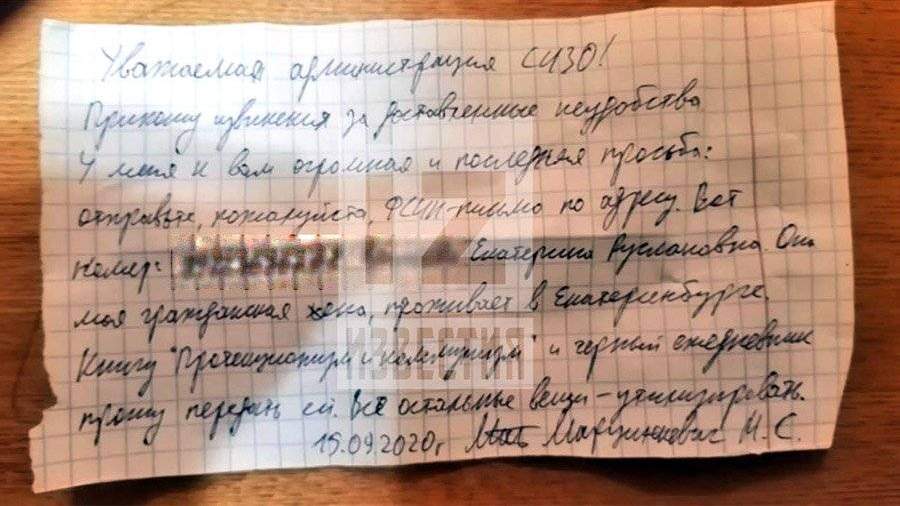 Уважаемая администрация СИЗО!
Приношу извинения за доставленные неудобства
У меня к вам огромная и последняя просьба:
отправьте, пожалуйста, ФСИН-письмо по адресу. Вот
номер: Екатерина Руслановна. Она
моя гражданская жена, проживает в Екатеринбурге.
Книгу "Протекционизм и коммунизм" и черный ежедневник
прошу передать ей. Все остальные вещи – утилизировать.
15.09.2020г Марцинкевич М.С.
IZ
ИЗВЕСТИЯ